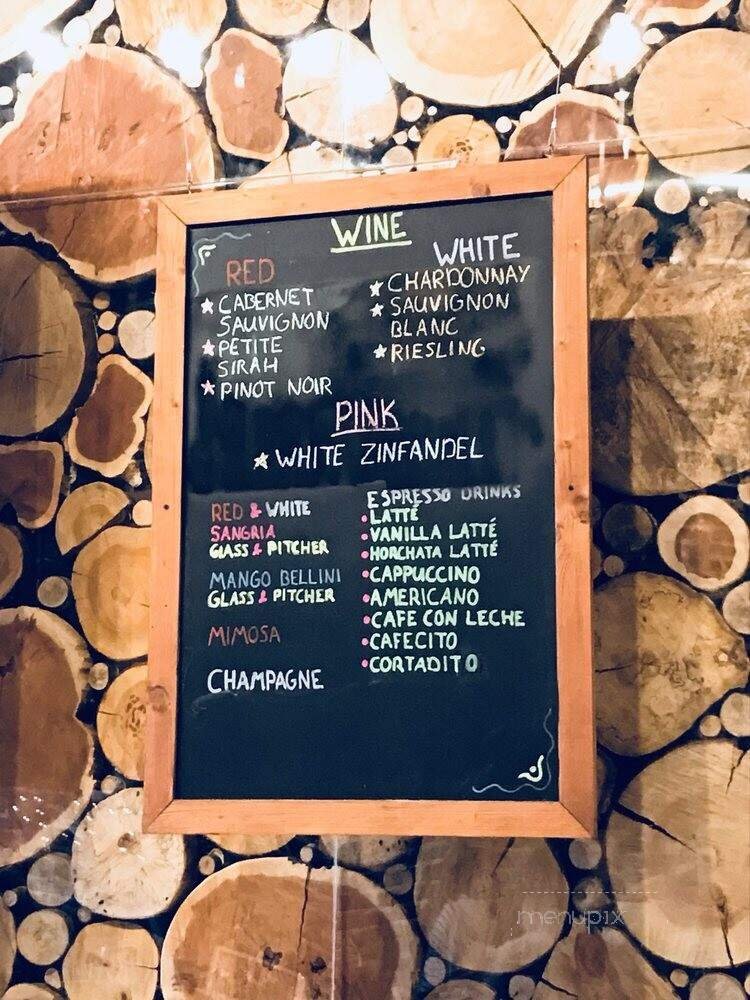 WINE
RED
CABERNET
SAUVIGNON
PETITE
SIRAH
PINOT NOIR
WHITE
CHARDONNAY
SAUVIGNON
BLANC
RIESLING
PINK
WHITE ZINFANDEL
RED & WHITE
SANGRIA
GLASS & PITCHER
MANGO BELLINI
GLASS & PITCHER
MIMOSA
CHAMPAGNE
ESPRESSO DRINKS
LATTÉ
VANILLA LATTÉ
HORCHATA LATTÉ
CAPPUCCINO
AMERICANO
CAFE CON LECHE
CAFECITO
CORTADITO
menupix